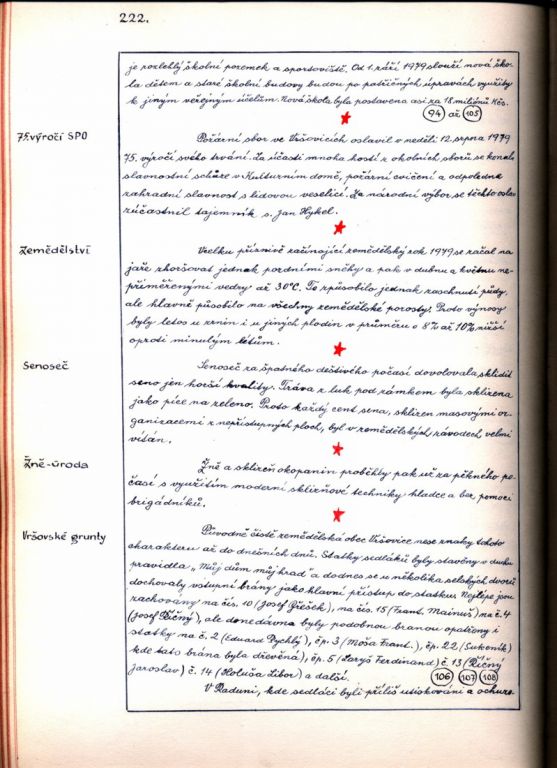 222.
je rozlehlý školní pozemek a sportoviště. Od 1. září 1979 slouží nová ško-
la dětem a staré školní budovy budou po patřičných úpravách využity
k jiným veřejným účelům. Nová škola byla postavena asi za 18 miliónů Kčs.
94 až 105
75. výročí SPO
Požární sbor ve Vršovicích oslavil v neděli 12. srpna 1979
75. výročí svého trvání. Za účasti mnoha hostí z okolních sborů se konala
slavnostní schůze v Kulturním domě, požární cvičení a odpoledne
zahradní slavnost s lidovou veselicí. Za národní výbor se těchto oslav
zúčastnil tajemník s. Jan Hykel.
Zemědělství
Vcelku příznivě začínající zemědělský rok 1979 se začal na
jaře zhoršovat jednak pozdními sněhy a pak v dubnu a květnu ne-
přiměřenými vedry až 30°C. To způsobilo jednak zaschnutí půdy,
ale hlavně působilo na všechny zemědělské porosty. Proto výnosy
byly letos u zrnin i u jiných plodin v průměru o 8% až 10% nižší
oproti minulým létům.
Senoseč
Senoseč za špatného deštivého počasí dovolovala sklidit
seno jen horší kvality. Tráva z luk pod zámkem byla sklizena
jako píce na zeleno. Proto každý cent sena, sklizen masovými or-
ganizacemi z nepřístupných ploch, byl v zemědělských závodech velmi
vítán.
Žně - úroda
Žně a sklizeň okopanin proběhly pak už za pěkného po-
časí s využitím moderní sklizňové techniky hladce a bez pomoci
brigádníků.
Vršovské grunty
Původně čistě zemědělská obec Vršovice nese znaky tohoto
charakteru až do dnešních dnů. Statky sedláků byly stavěny v duchu
pravidla „Můj dům můj hrad" a dodnes se u několika selských dvorů
dochovaly vstupní brány jako hlavní přístup do statku. Nejlépe jsou
zachovány na čís. 10 (Josef Gřešek), na čís. 15 (Frant. Mainuš) na č. 4
(Josef Říčný), ale donedávna byly podobnou branou opatřeny i
statky na č. 2 (Eduard Pychlý), čp. 3 (Moša Frant.), čp. 22 (Sukeník)
kde tato brána byla dřevěná), čp. 5 (Laryš Ferdinand) č. 13 (Říčný
Jaroslav) č. 14 (Holuša Libor) a další.
106 107 108
V Raduni, kde sedláci byli příliš utiskováni a ochuze-